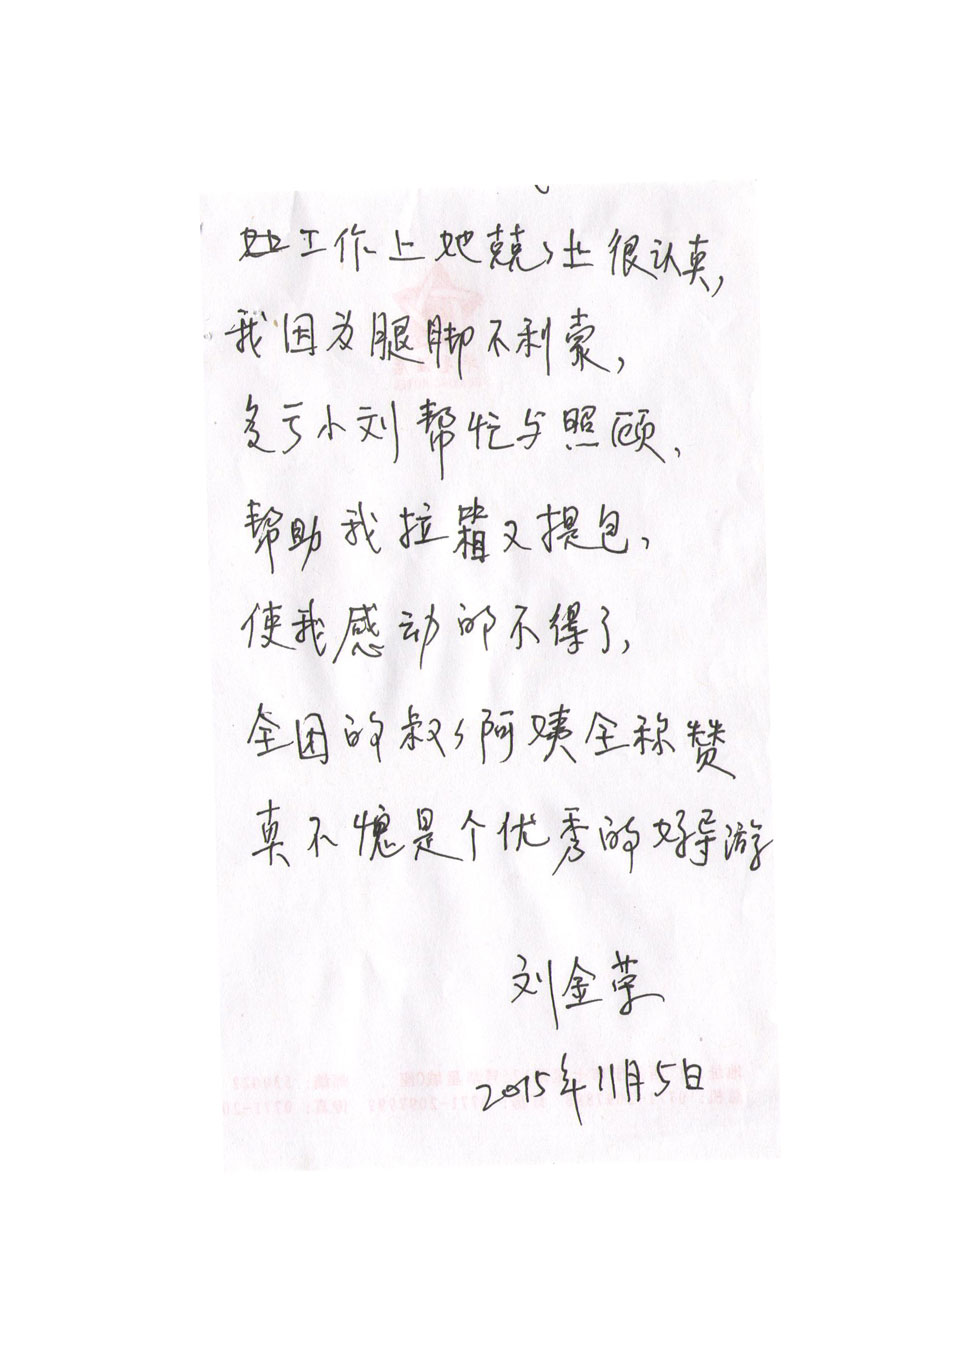 工作上她兢〻业很认真，
我因为腿脚不利索，
多亏小刘帮忙与照顾、
帮助我拉箱又提包，
使我感动的不得了，
全团的叔〻阿姨全称赞
真不愧是个优秀的好导游
刘金荣
2015年11月5日